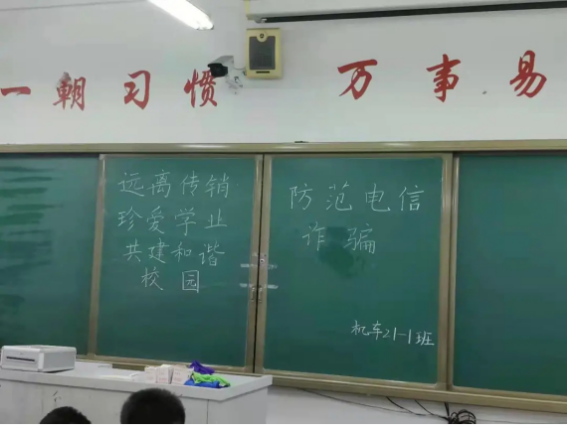 一朝习惯 万事易
远离传销
珍爱学业
共建和谐
校园
防范电信
诈骗
机车21-1班